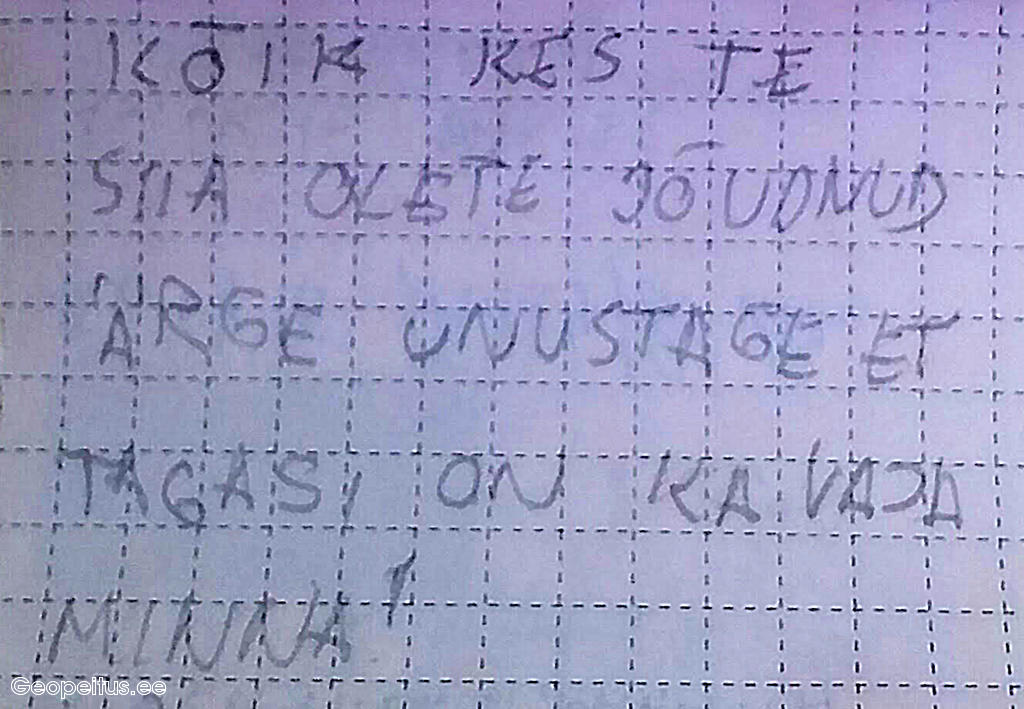 KÕIK KES TE
SIIA OLETE JÕUDNUD
ÄRGE UNUSTAGE ET
TAGASI ON KA VAJA
MINNA!
Geopeitus.ee